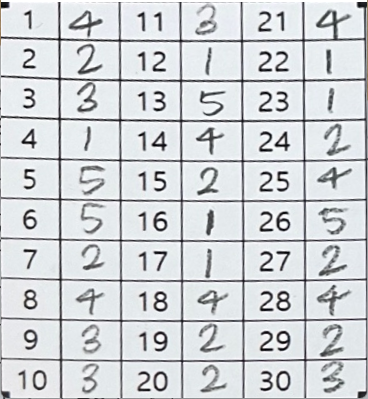 1 4 11 3 21 4
2 2 12 1 22 1
3 3 13 5 23 1
4 1 14 4 24 2
5 5 15 2 25 4
6 5 16 1 26 5
7 2 17 1 27 2
8 4 18 4 28 4
9 3 19 2 29 2
10 3 20 2 30 3